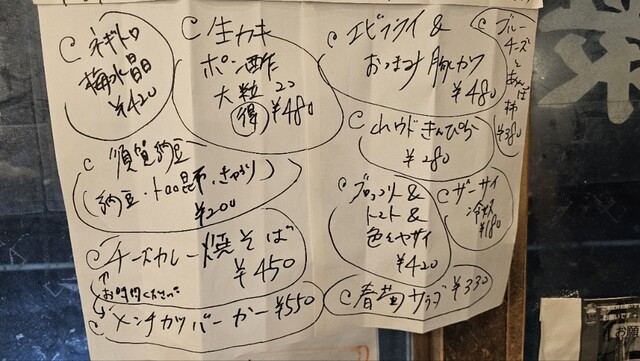 ネギトロ
梅水晶
¥420
生カキ
ポン酢
大粒 2コ
得 ¥480
エビフライ &
おつまみ 豚カツ
¥480
ブルー
チーズと
あんぽ
柿
¥380
ウドきんぴら
¥280
納豆
(納豆・とろろ昆布・きゅうり)
¥200
ブロッコリー &
トマト &
色々ヤサイ
¥420
ザーサイ
冷奴
¥180
チーズカレー焼そば
¥450
メンチカツバーガー ¥550
春菊サラダ ¥330